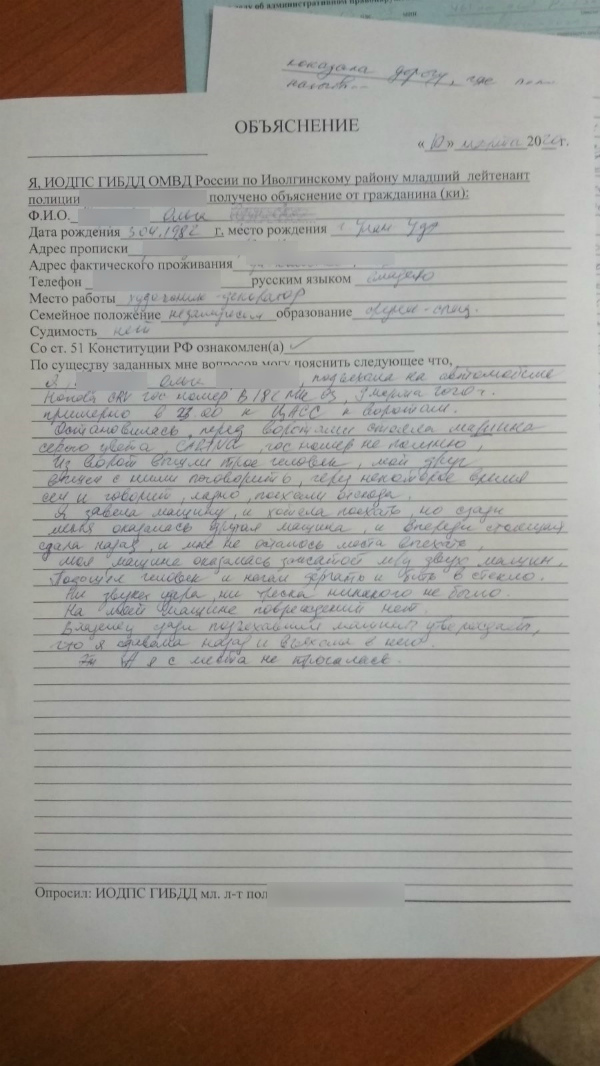 об административном правонару
показала дорогу, где
ОБЪЯСНЕНИЕ
«10» марта 2020 г.
Я, ИОДПС ГИБДД ОМВД России по Иволгинскому району младший лейтенант
полиции получено объяснение от гражданина (ки):
Ф.И.О. Ольга
Дата рождения 3.04.1982 г. место рождения г. Улан Удэ
Адрес прописки
Адрес фактического проживания
Телефон русским языком владею
Место работы художник-декоратор
Семейное положение незамужем образование средне-спец.
Судимость нет
Со ст. 51 Конституции РФ ознакомлен(а) ✓
По существу заданных мне вопросов могу пояснить следующее что,
Я, Ольга, подъехала на автомобиле
Honda CRV гос номер 9 марта 2020 г.
примерно в к ЦАСС к воротам.
Остановилась, перед воротами стояла машина
серого цвета CARINA, гос номер не помню,
Из ворот вышли трое человек, мой друг
вышел с ними поговорить, через некоторое время
сел и говорит, ладно, поехали отсюда.
Я завела машину, и хотела поехать, но сзади
меня оказалась другая машина, и впереди стоящая
сдала назад, и мне не осталось места выехать,
моя машина оказалась зажатой между двух машин.
Подошел человек и начал дергать и бить в стекло.
Ни звука удара, ни треска никакого не было.
На моей машине повреждений нет.
Владелец сзади подъехавшей машины утверждает,
что я сдавала назад и въехала в него
А я с места не трогалась.
Опросил: ИОДПС ГИБДД мл. л-т пол